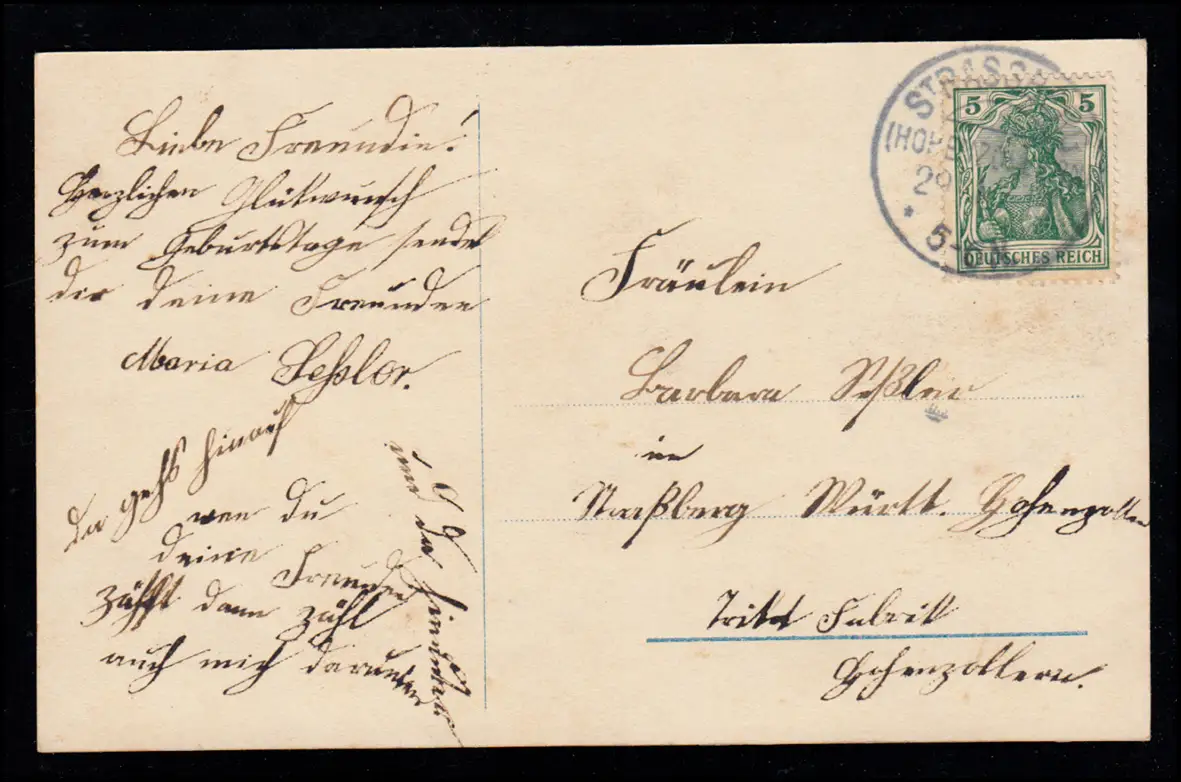 Liebe Freundin!
Herzlichen Glükwunsch
zum Geburtstage sendet
dir deine Freunden
Maria Seßler.
Da gehs hinauf
und da hinunter
wen du
deine Freunden
zählst dann zähl
auch mich darunter
STRASSB
(HOHENZ
29
* 5-6N
5 5
DEUTSCHES REICH
Fräulein
Barbara Seßler
in
Straßberg Württ. Hohenzollern
Fabrik
Hohenzollern.